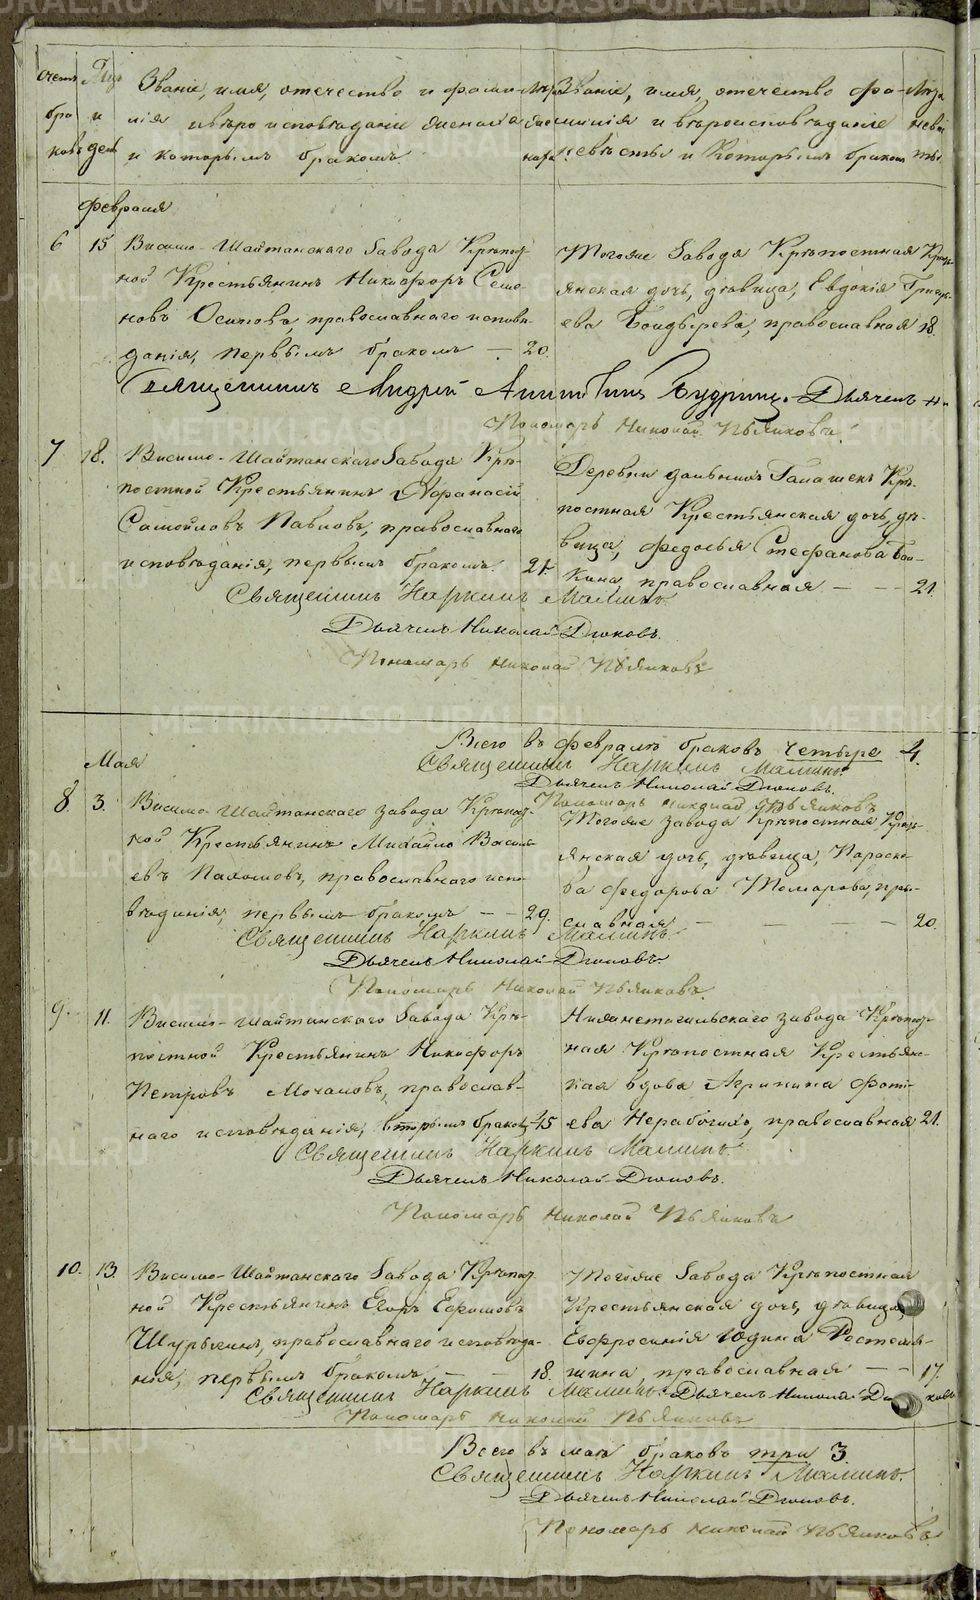 Счетъ бра ковъ
Мца и день
Званіе, имя, отечество и фами-
лія и вѣроисповѣданіе жениха
и которымъ бракомъ.
Званіе, имя, отечество фа-
милія и вѣроисповѣданіе
невѣсты и которымъ бракомъ
Лѣта невѣ сты
Февраля
6 15 Висимо-Шайтанскаго Завода Крѣпост
ной Крестьянинъ Никифоръ Семе
новъ Осиповъ, православнаго исповѣ
данія, первымъ бракомъ — 20.
Тогоже Завода Крѣпостная Кресть
янская дочь, дѣвица, Евдокія Григорь
ева Бондырева, православная 18.
Священникъ Андрей Дьячекъ
Пономарь Николай Пьянковъ.
7 18. Висимо-Шайтанскаго Завода Крѣ-
постной Крестьянинъ Афанасій
Самойловъ Павловъ, православнаго
исповѣданія, первымъ бракомъ. 21.
Деревни дальныхъ Галашекъ Крѣ-
постная Крестьянская дочь, дѣ-
вица, Федосья Стефанова
православная — — 21.
Священникъ Наркиссъ Малминъ.
Дьячекъ Николай Дюковъ.
Пономарь Николай Пьянковъ
Всего въ февралѣ браковъ четыре 4.
Священникъ Наркиссъ Малминъ
Дьячекъ Николай Дюковъ.
Пономарь Николай Пьянковъ
Мая
8 3. Висимо-Шайтанскаго завода Крѣпост-
ной Крестьянинъ Михайло Василь
евъ Пахомовъ, православнаго испо
вѣданія, первымъ бракомъ — — 29.
Тогоже завода Крѣпостная Кресть-
янская дочь, дѣвица, Параске-
ва Федорова Токарова, право-
славная — — — 20.
Священникъ Наркиссъ Малминъ
Дьячекъ Николай Дюковъ.
Пономарь Николай Пьянковъ
9. 11. Висимо-Шайтанскаго Завода Крѣ-
постной Крестьянинъ Никифоръ
Петровъ Мочаловъ, православ-
наго исповѣданія, вторымъ бракомъ 45
Нижнетагильскаго завода Крѣпост-
ная Крѣпостная Крестьян-
ская вдова Агрипина Фоти-
ева Нерабочихъ, православная 21.
Священникъ Наркиссъ Малминъ
Дьячекъ Николай Дюковъ.
Пономарь Николай Пьянковъ
10. 13. Висимо-Шайтанскаго Завода Крѣпост
ной Крестьянинъ Егоръ Ефимовъ
Шурыгинъ, православнаго исповѣда-
нія, первымъ бракомъ — — 18.
Тогоже Завода Крѣпостная
Крестьянская дочь, дѣвица,
Ефросинія Юдина
православная — — 17.
Священникъ Наркиссъ Малминъ. Дьячекъ Николай Дюковъ
Пономарь Николай Пьянковъ
Всего въ маѣ браковъ три 3
Священникъ Наркиссъ Малминъ.
Дьячекъ Николай Дюковъ.
Пономарь Николай Пьянковъ.
METRIKI.GASO-URAL.RU